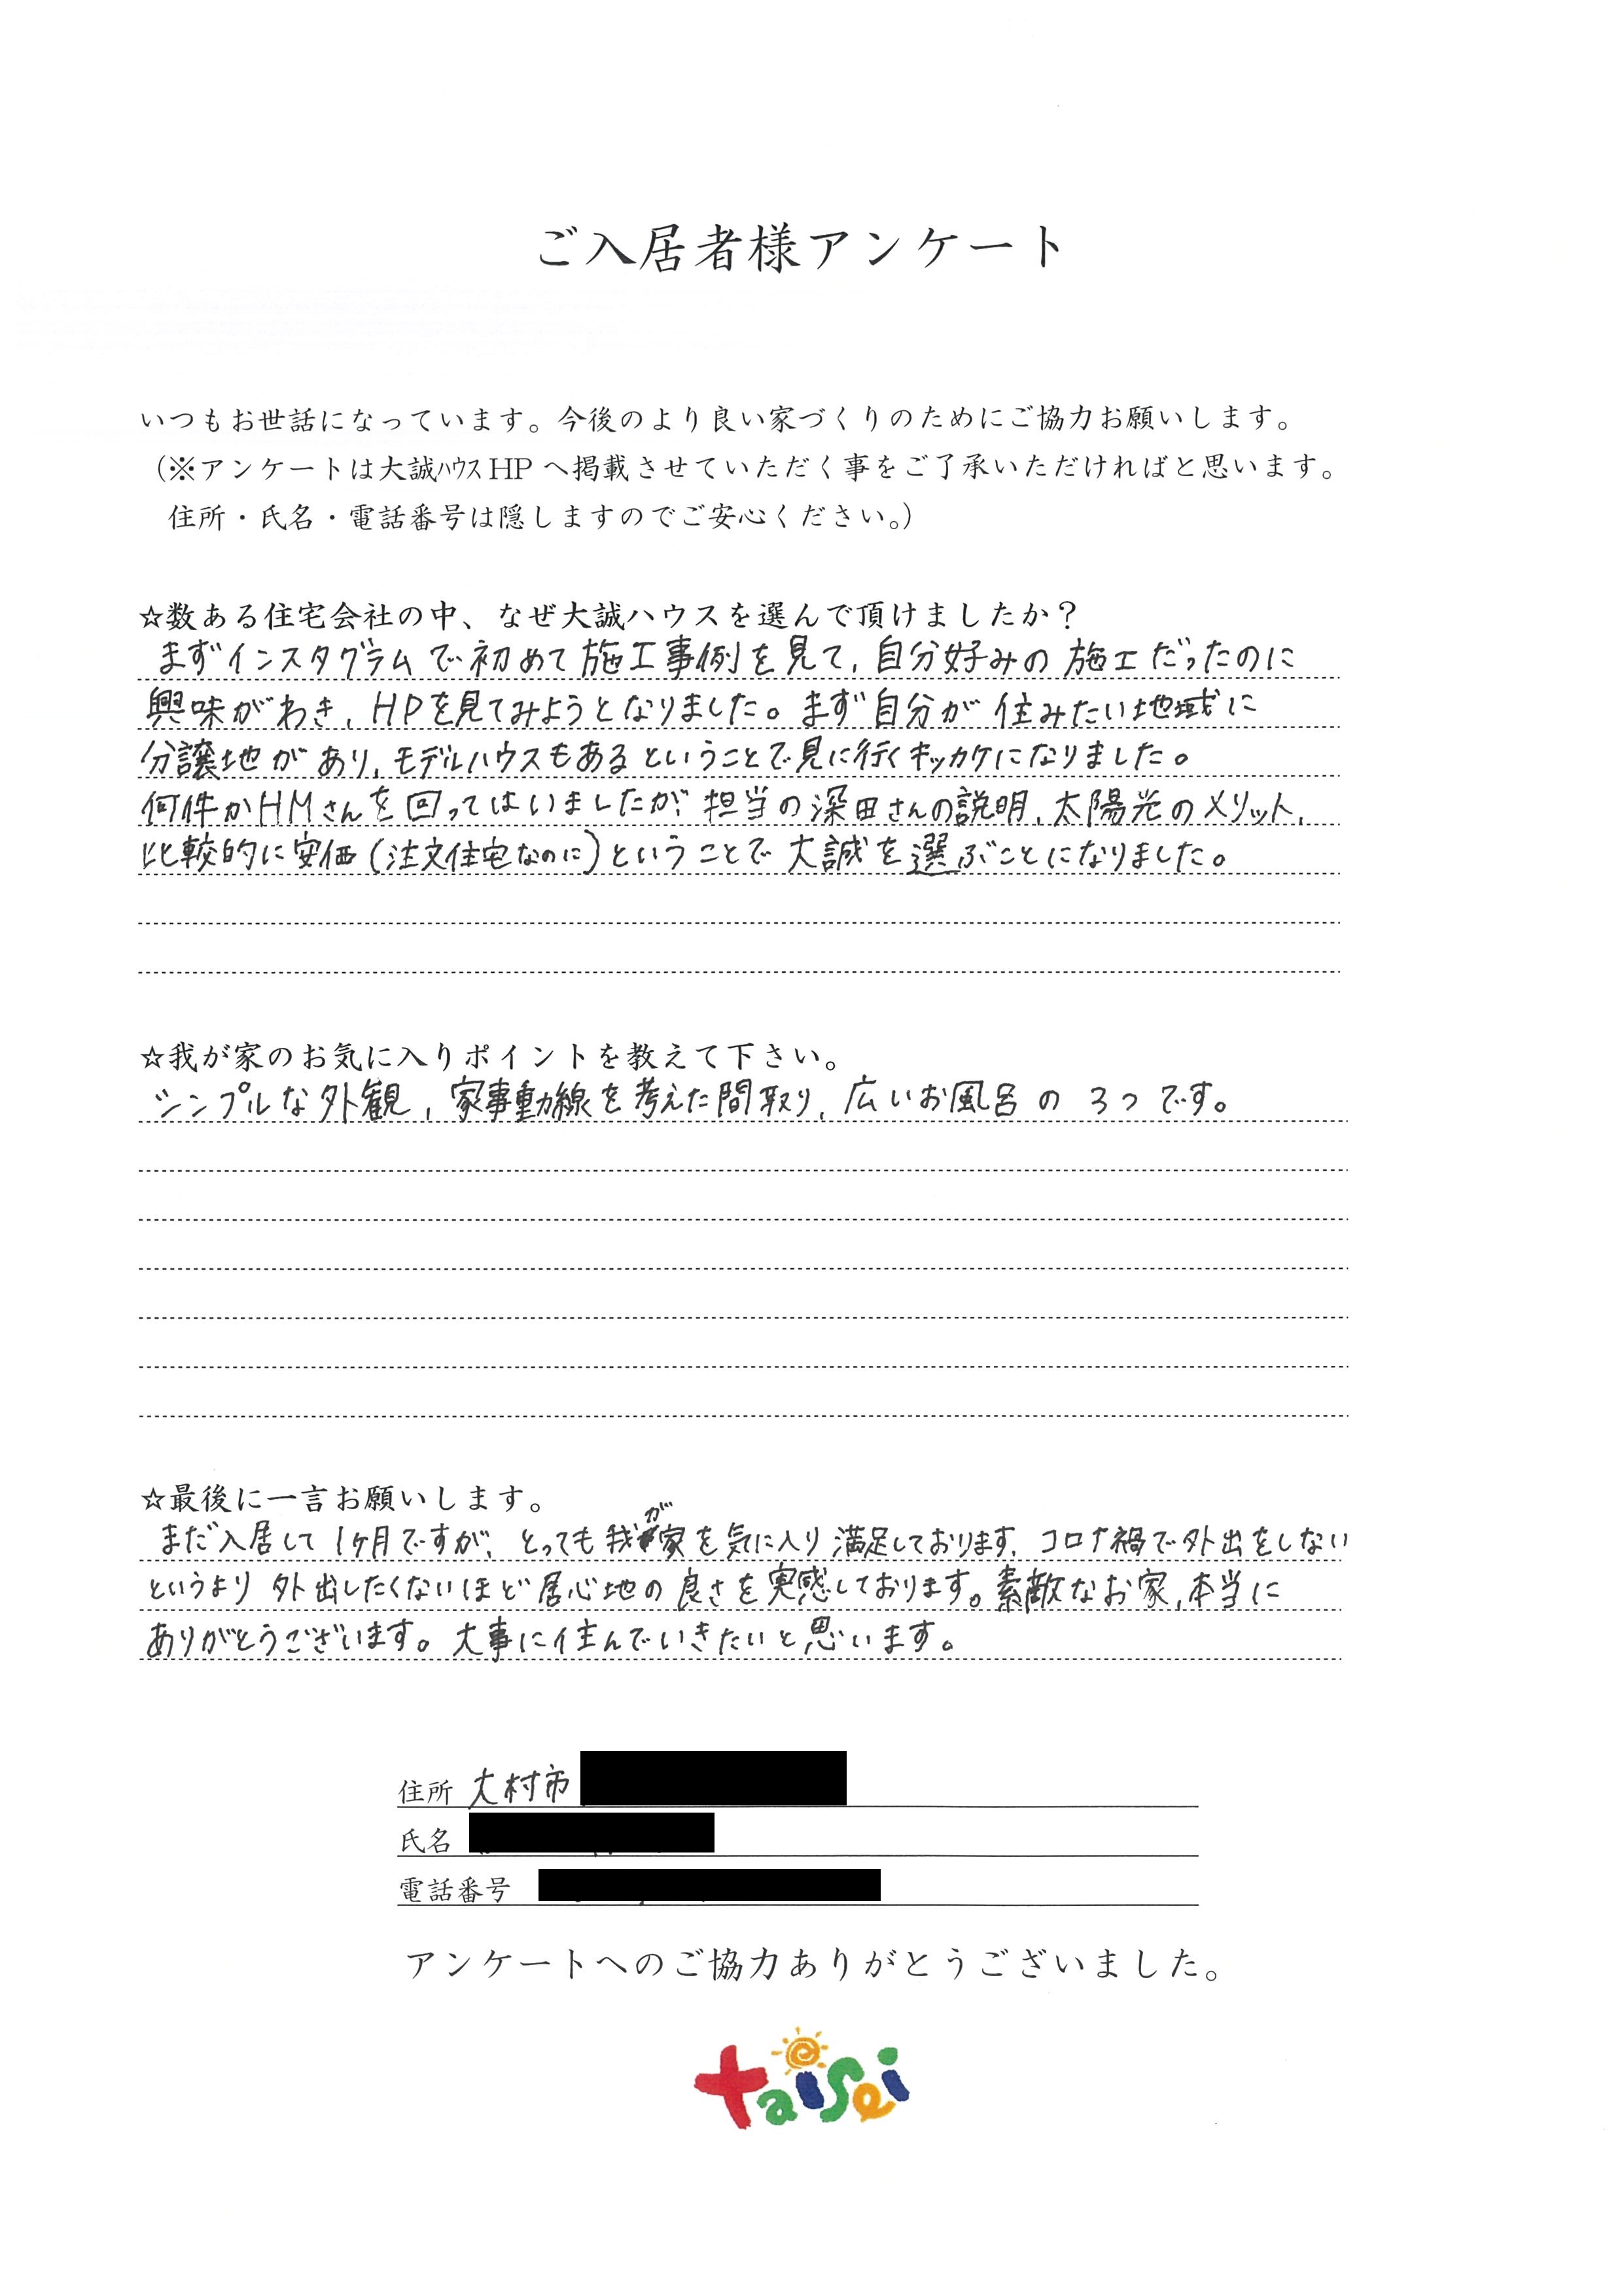 ご入居者様アンケート
いつもお世話になっています。今後のより良い家づくりのためにご協力お願いします。
（※アンケートは大誠ﾊｳｽHPへ掲載させていただく事をご了承いただければと思います。
住所・氏名・電話番号は隠しますのでご安心ください。）
☆数ある住宅会社の中、なぜ大誠ハウスを選んで頂けましたか？
まずインスタグラムで初めて施工事例を見て、自分好みの施工だったのに
興味がわき、HPを見てみようとなりました。まず自分が住みたい地域に
分譲地があり、モデルハウスもあるということで見に行くキッカケになりました。
何件かHMさんを回ってはいましたが、担当の深田さんの説明、太陽光のメリット、
比較的に安価(注文住宅なのに)ということで大誠を選ぶことになりました。
☆我が家のお気に入りポイントを教えて下さい。
シンプルな外観、家事動線を考えた間取り、広いお風呂の3つです。
☆最後に一言お願いします。
まだ入居して1ヶ月ですが、とっても我が家を気に入り満足しております。コロナ禍で外出をしない
というより外出したくないほど居心地の良さを実感しております。素敵なお家、本当に
ありがとうございます。大事に住んでいきたいと思います。
住所 大村市
氏名
電話番号
アンケートへのご協力ありがとうございました。
taisei